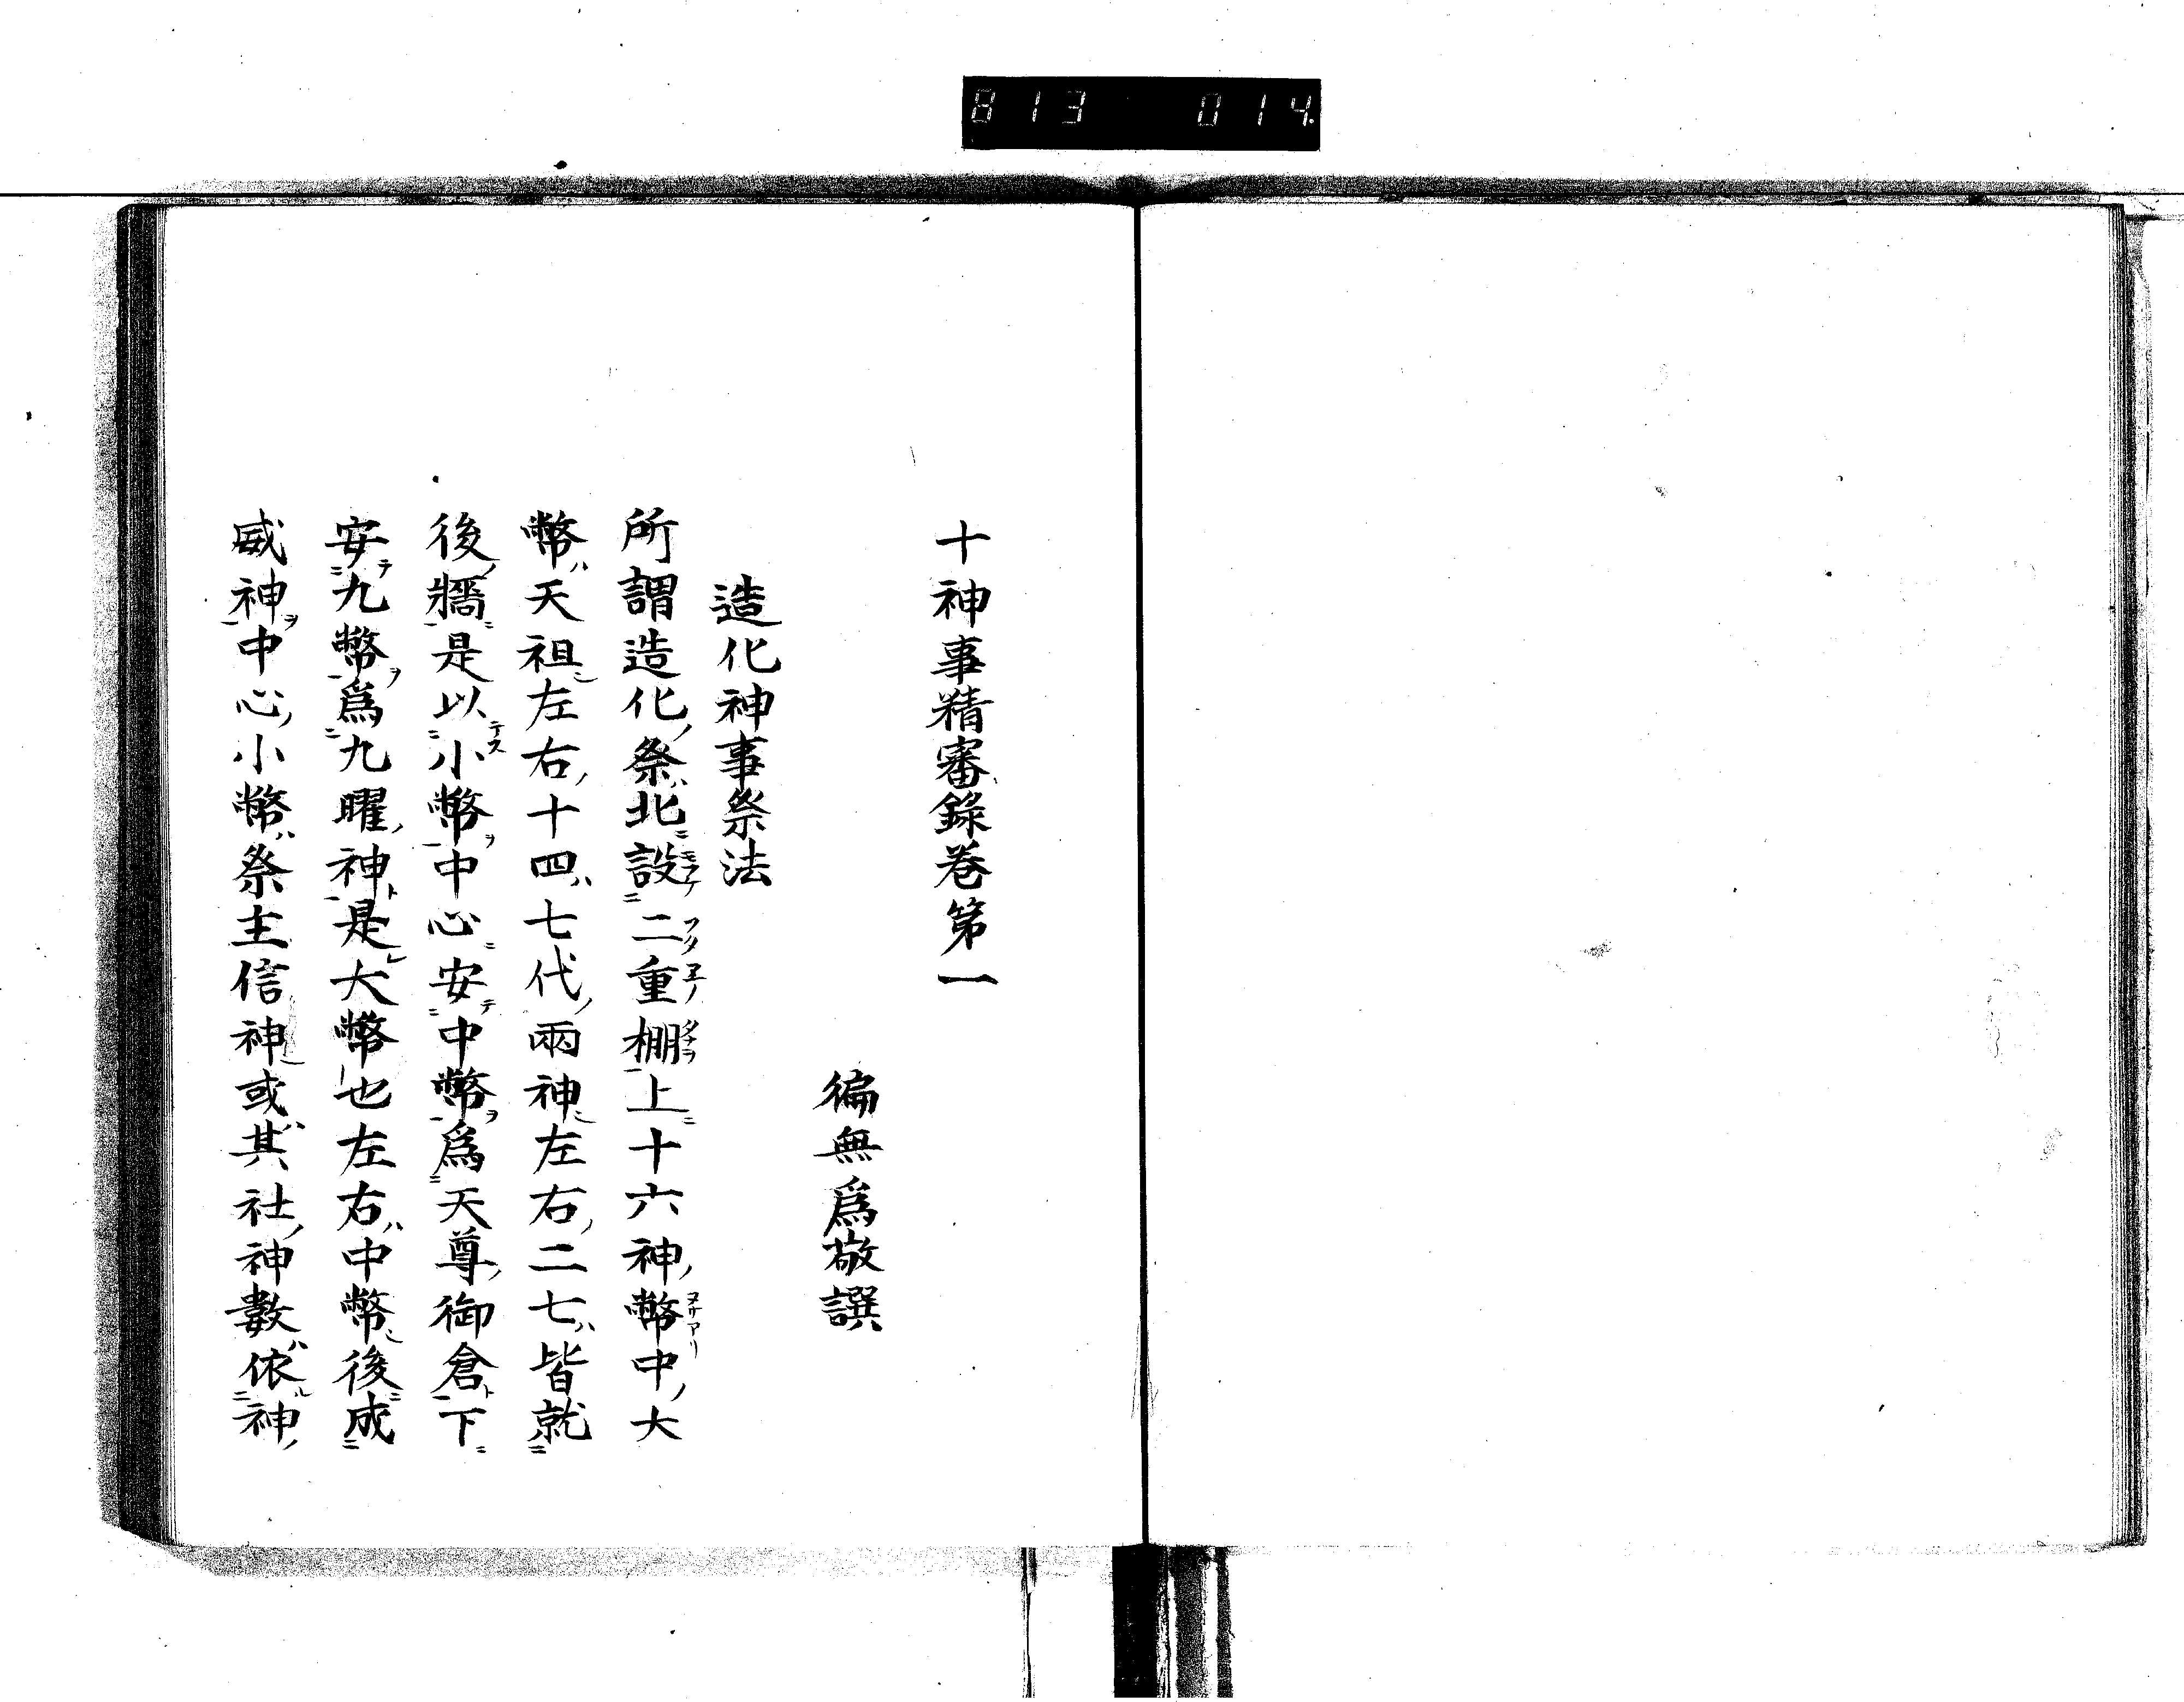 813 014
十神事精審錄卷第一
徧無爲敬譔
造化神事祭法
所謂造化ノ祭ハ北ニ設二重棚上ニ十六神ノ幣中ノ大
幣ハ天祖左右ノ十四ハ七代ノ兩神左右ノ二七ハ皆就
後ノ牆ニ是以小幣ヲ中心ニ安テ中幣ヲ爲天尊ノ御倉ト下ニ
安テ九幣ヲ爲九曜ノ神ト是レ大幣也左右ハ中幣後ニ成
威神ヲ中心ノ小幣ハ祭主信神或ハ其ノ社ノ神數ハ依ル神ノ